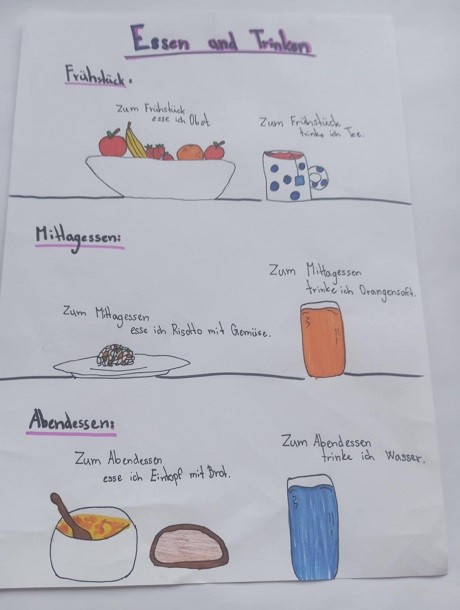 Essen and Trinken
Frühstück:
Zum Frühstück
esse ich Obst
Zum Frühstück
trinke ich Tee.
Mittagessen:
Zum Mittagessen
trinke ich Orangensaft.
Zum Mittagessen
esse ich Risotto mit Gemüse.
Abendessen:
Zum Abendessen
esse ich Eintopf mit Brot.
Zum Abendessen
trinke ich Wasser.